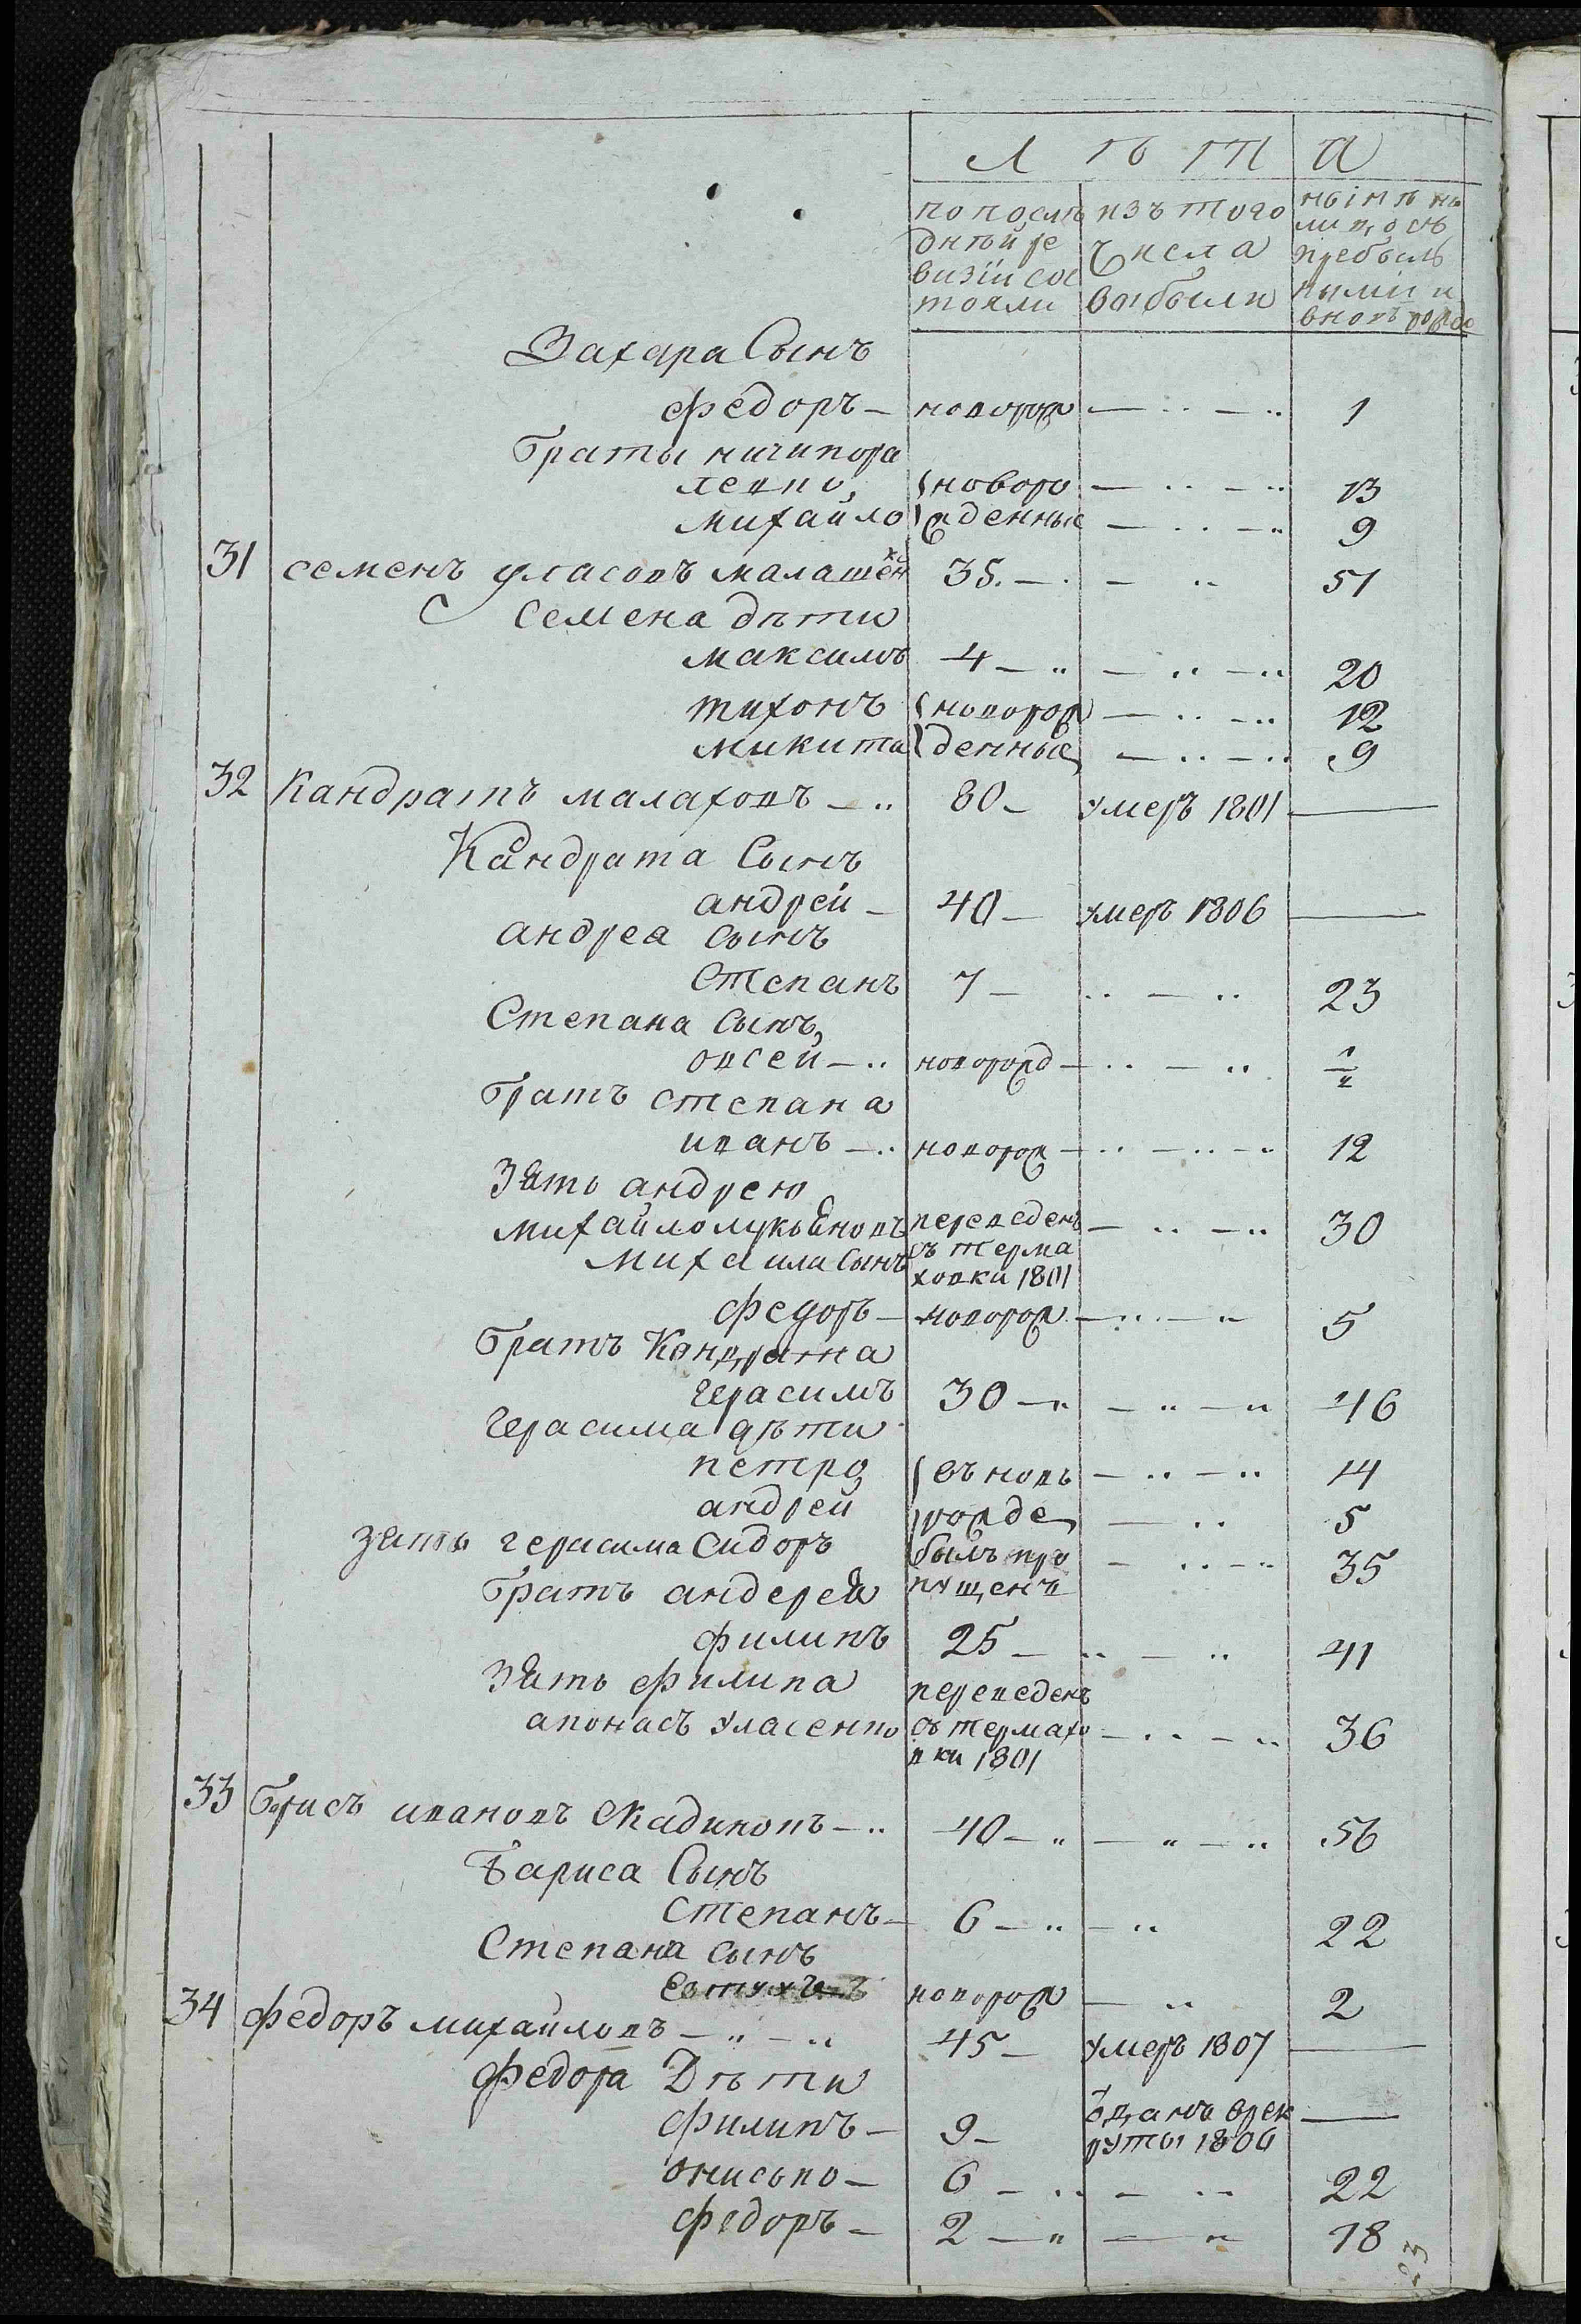 Л Ѣ Т А
по послѣ
дней ре
визіи сос
тояли
изъ того
числа
выбыли
нынѣ на
лицо съ
пребыл
ными и
вновь рожде
Захара Сынъ
Федоръ - новорож - .. - .. 1
Браты ничипора
левко, новоро - .. - .. 13
михайло жденные - .. - .. 9
31 семенъ уласовъ малашенко 35. - . - .. 51
Семена дѣти
максимъ 4 - .. - .. - .. 20
тихонъ новорож - .. - .. 12
микита денные - .. - .. 9
32 Кандратъ малаховъ - .. 80 - умеръ 1801 —
Кандрата Сынъ
андрей - 40 - умеръ 1806 —
андрея сынъ
Степанъ 7 - .. - .. 23
Степана Сынъ,
овсей - .. новорожд - .. - ..
Братъ степана
иванъ - .. новорож - .. - .. - .. 12
Зять андрею
михайло лукьяновъ переведенъ - .. - .. 30
михаила Сынъ съ терма
ховки 1801
Федоръ - новорож - .. - .. 5
Братъ Кандрата
герасимъ 30 - .. - .. - .. 46
герасима дѣти
петро въновь - .. - .. 14
андрей рожде - .. 5
зять герасима Сидоръ былъ про - .. - .. 35
пущенъ
Братъ андерея
филипъ 25 - .. - .. 41
Зять Филипа переведенъ
апонасъ уласенко съ термахо - .. - .. 36
вки 1801
33 Борисъ ивановъ Скадиновъ - .. 40 - .. - .. - .. 56
Бариса Сынъ
Степанъ - 6 - .. - .. 22
Степана сынъ
Евтухъ новорож - .. 2
34 Федоръ михайловъ - .. - .. 45 - умеръ 1807 —
Федора Дѣти
Филипъ - 9 - одданъ врек —
руты 1806
онисько - 6 - .. - .. 22
Федоръ - 2 - .. - .. 18
23